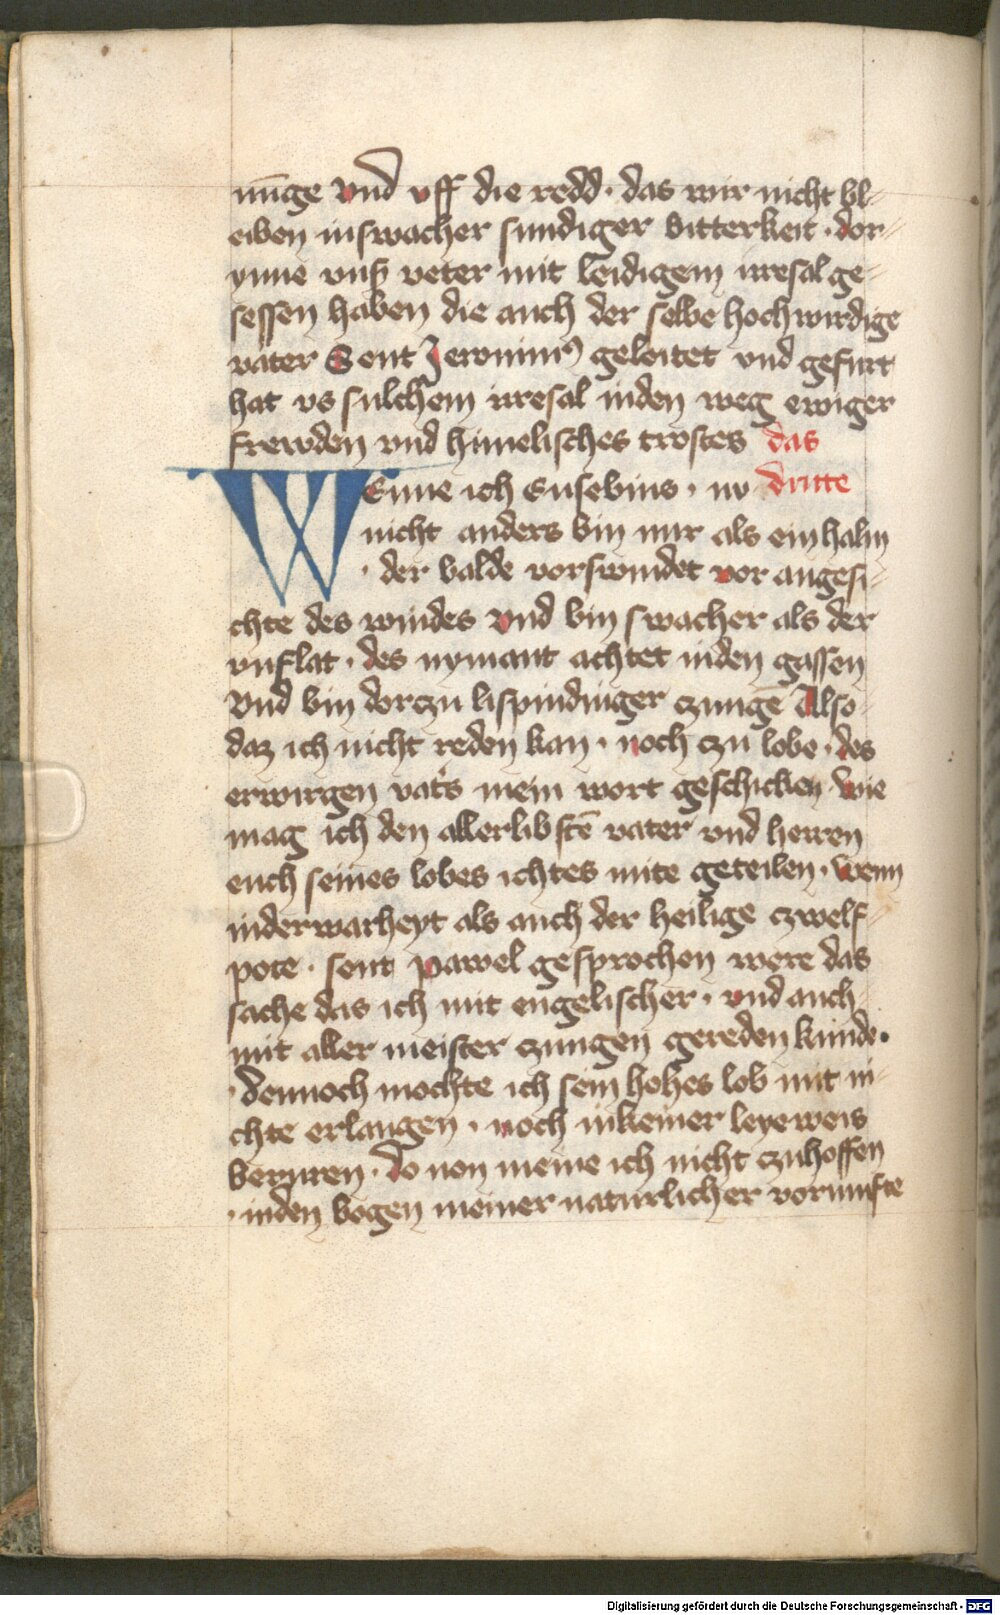 nu̅ge vnd vff die redd · das wir nicht bl-
eiben inswacher sundiger bitterkeit · dor-
ynne vnß veter mit leidigem irresal ge-
sessen haben die auch der selbe hochwirdige
vater Sent Jeronimꝰ geleitet vnd gefurt
hat vs sulchem irresal inden weg ewiger
frewden vnd himelisches trostes das
WEnne ich Eusebius · nv dritte
nicht anders bin nur als ein halm
· der balde vorswindet vor angesi-
chte des windes vnd bin swacher als der
vnflat · des nymant achtet inden gassen
Vnd bin dorczu lispindinger czunge̅ Also-
daz ich nicht reden kan · noch czu lobe · des
erwirgen vat's mein wort geschicken · wie
mag ich den allerlibste̅ vater vnd herren
euch seines lobes ichtes mite geteilen · wenn
inderwarheyt als auch der heilige czwelf-
pote · sent pawel gesprochen were das
sache das ich mit engelischer · vnd auch
mit aller meister czungen gereden kunde ·
· dennoch mochte ich sein hohes lob mit ni-
chte erlangen · noch inkeiner leyeweis
beruren · do von meine ich nicht czuhoffen
· inden bogen meiner naturlicher vornunfte
Digitalisierung gefördert durch die Deutsche Forschungsgemeinschaft - DFG